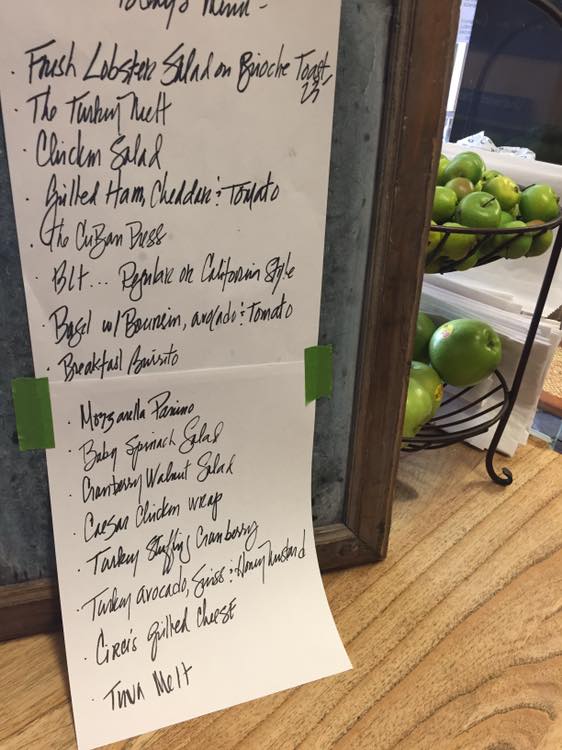 Today's Menu -
· Fresh Lobster Salad on Brioche Toast
23
· The Turkey Melt
· Chicken Salad
· Grilled Ham, Cheddar & Tomato
· The Cuban Press
· BLT... Regular or California Style
· Bagel w/ Boursin, avocado & Tomato
· Breakfast Burrito
· Mozzarella Panino
· Baby Spinach Salad
· Cranberry Walnut Salad
· Caesar Chicken wrap
· Turkey Stuffing Cranberry
· Turkey avocado, Swiss & Honey Mustard
· grilled Cheese
· Tuna Melt